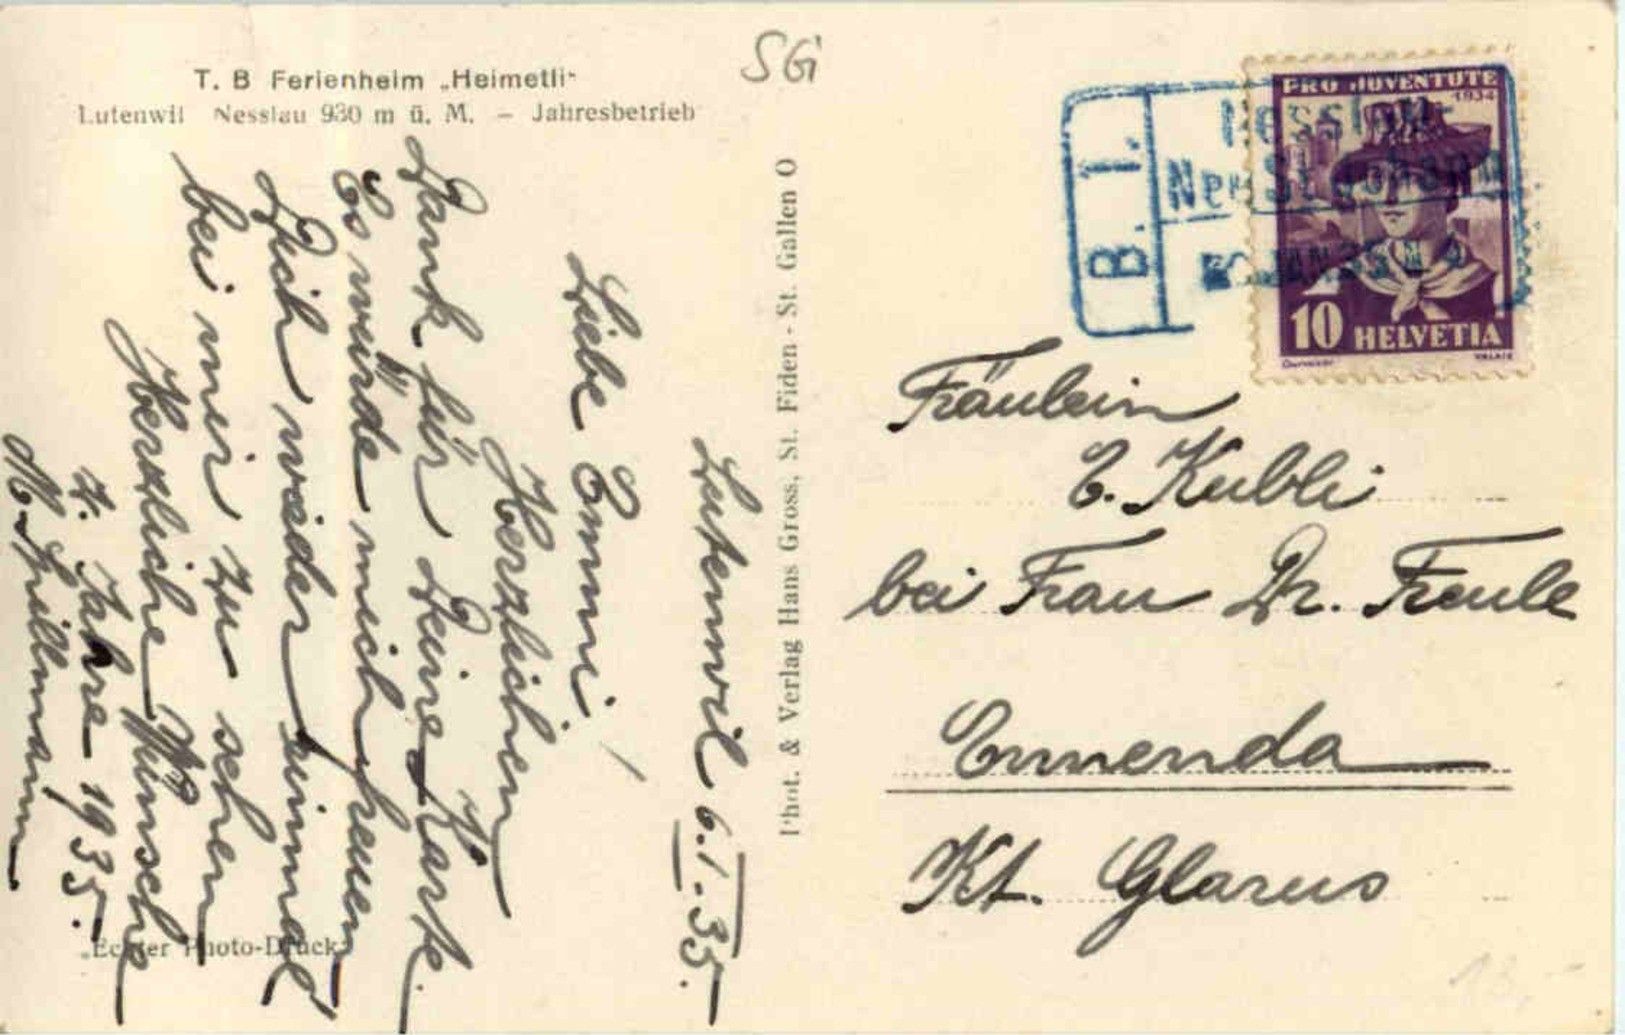 SG
T. B Ferienheim „Heimetli“
Lutenwil Nesslau 930 m ü. M. – Jahresbetrieb
Lutenwil 6.1.35.
Liebe Emmi!
Herzlichen
Dank für Deine Karte.
Es würde mich freuen
Dich wieder einmal
bei mir zu sehen
Herzliche Wünsche
z. Jahre 1935.
M. Spillmann
„Echter Photo-Druck“
Phot. & Verlag Hans Gross, St. Fiden - St. Gallen O
B. I.
Nesslau-
Neu St. Johann
PRO JUVENTUTE
1934
10 HELVETIA
VALAIS
Fräulein
E. Kubli
bei Frau Dr. Freule
Ennenda
Kt. Glarus
18,-